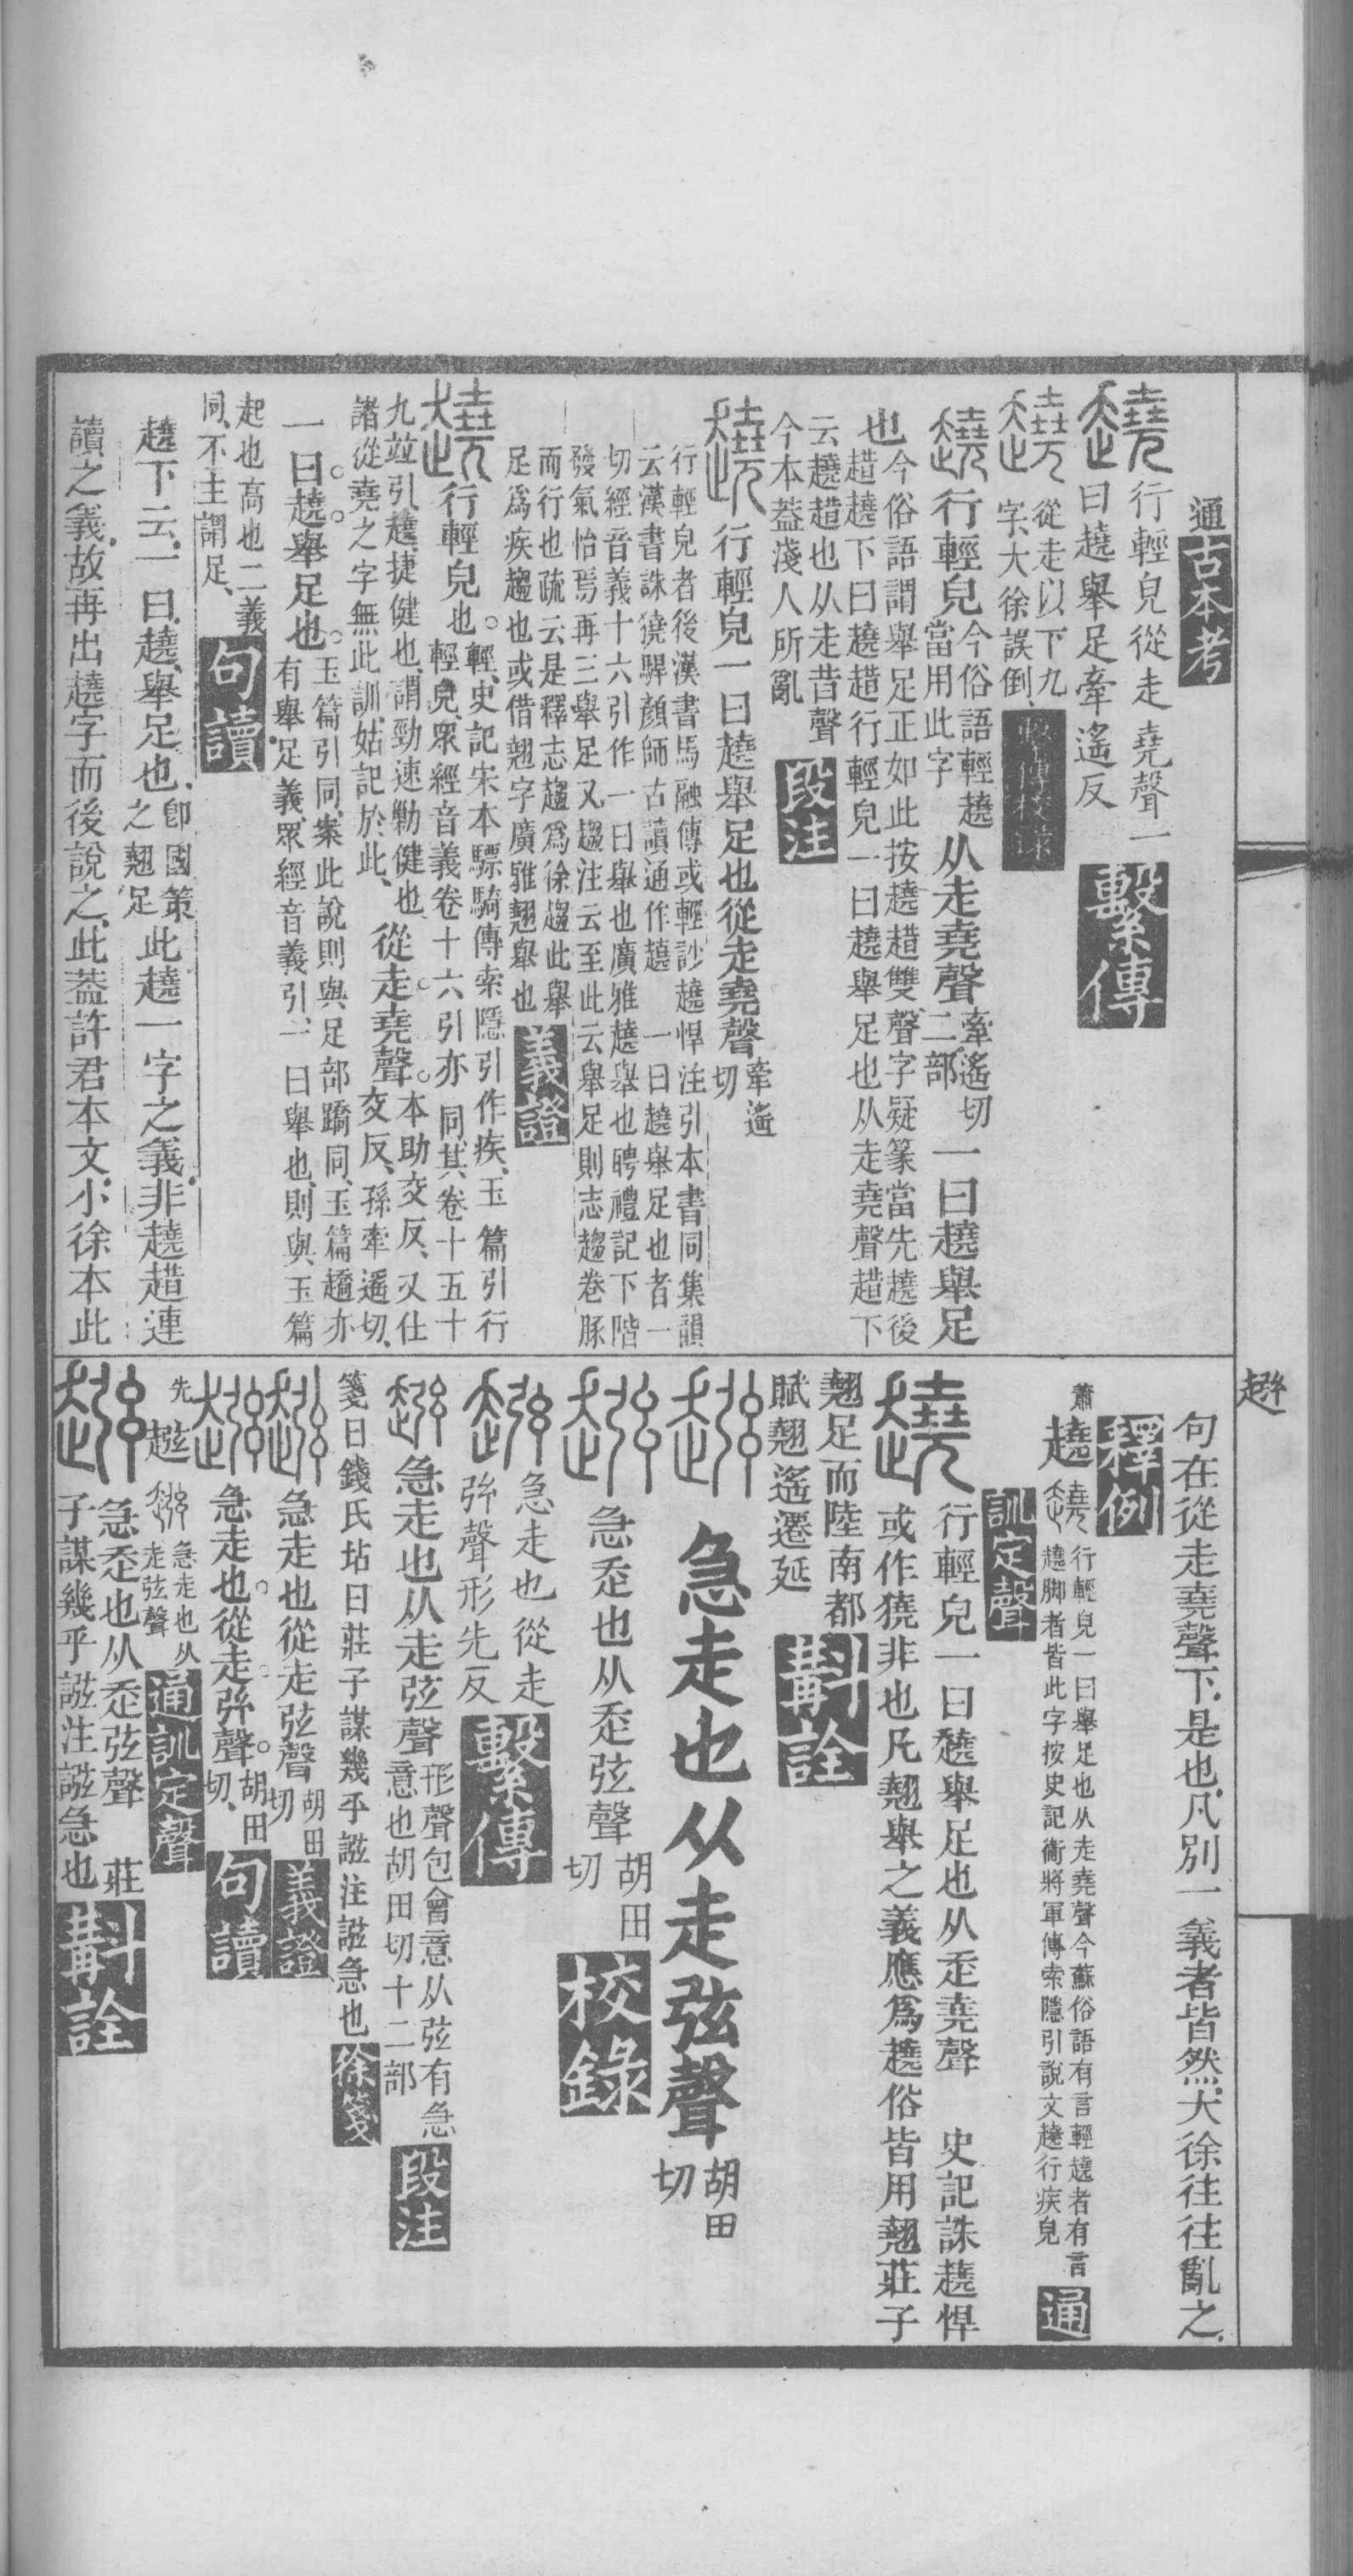 通古本考
行輕皃從走堯聲一
曰趬舉足牽遙反
繫傳
從走以下九
字、大徐誤倒、
繫傳校錄
行輕皃今俗語輕趬
當用此字从走堯聲牽遙切
二部一曰趬舉足
也今俗語謂舉足正如此按趬趞雙聲字疑篆當先趬後
趞趬下曰趬趞行輕皃一曰趬舉足也从走堯聲趞下
云趬趞也从走昔聲
今本蓋淺人所亂
段注
行輕皃一曰趬舉足也從走堯聲牽遙
切
行輕皃者後漢書馬融傳或輕訬趬悍注引本書同集韻
云漢書誅獟駻顏師古讀通作趬 一曰趬舉足也者一
切經音義十六引作一曰舉也廣雅趬舉也聘禮記下階
發氣怡焉再三舉足又趨注云至此云舉足則志趨卷豚
而行也疏云是釋志趨爲徐趨此舉
足爲疾趨也或借翹字廣雅翹舉也
義證
行輕皃也。輕、史記宋本驃騎傳索隱引作疾、玉篇引行
輕皃、眾經音義卷十六引亦同、其卷十五十
九竝引趬、捷健也、謂勁速勦健也
諸從堯之字無此訓、姑記於此、從走。堯聲。本助交反、又仕
交反、孫牽遙切、
一曰。趬。舉足也。玉篇引同、案此說則與足部蹻同、玉篇趫亦
有舉足義、眾經音義引、一曰舉也、則與玉篇
起也高也二義
同、不主謂足、
句讀
趬下云、一曰、趬、舉足也、卽國策
之翹足此趬一字之義、非趬趞連
讀之義、故再出趬字而後說之、此蓋許君本文、小徐本此
趬
句在從走堯聲下、是也、凡別一義者皆然、大徐往往亂之、
釋例
蕭
趬
行輕皃一曰舉足也从走堯聲今蘇俗語有言輕趬者有言
趬脚者皆此字按史記衞將軍傳索隱引說文趬行疾皃
通
訓定聲
行輕皃一曰趬舉足也从歪堯聲 史記誅趬悍
或作獟非也凡翹舉之義應爲趬俗皆用翹莊子
翹足而陸南都
賦翹遙遷延
斠詮
急走也从走弦聲胡田
切
急歪也从歪弦聲胡田
切
校錄
急走也從走
弦聲形先反
繫傳
急走也从走弦聲形聲包會意从弦有急
意也胡田切十二部
段注
箋曰錢氏坫曰莊子謀幾乎誸注誸急也
徐箋
急走也從走弦聲胡田
切
義證
急走也。從走。弦聲。胡田
切、
句讀
先
急走也从
走弦聲
通訓定聲
急歪也从歪弦聲 莊
子謀幾乎誸注誸急也
斠詮